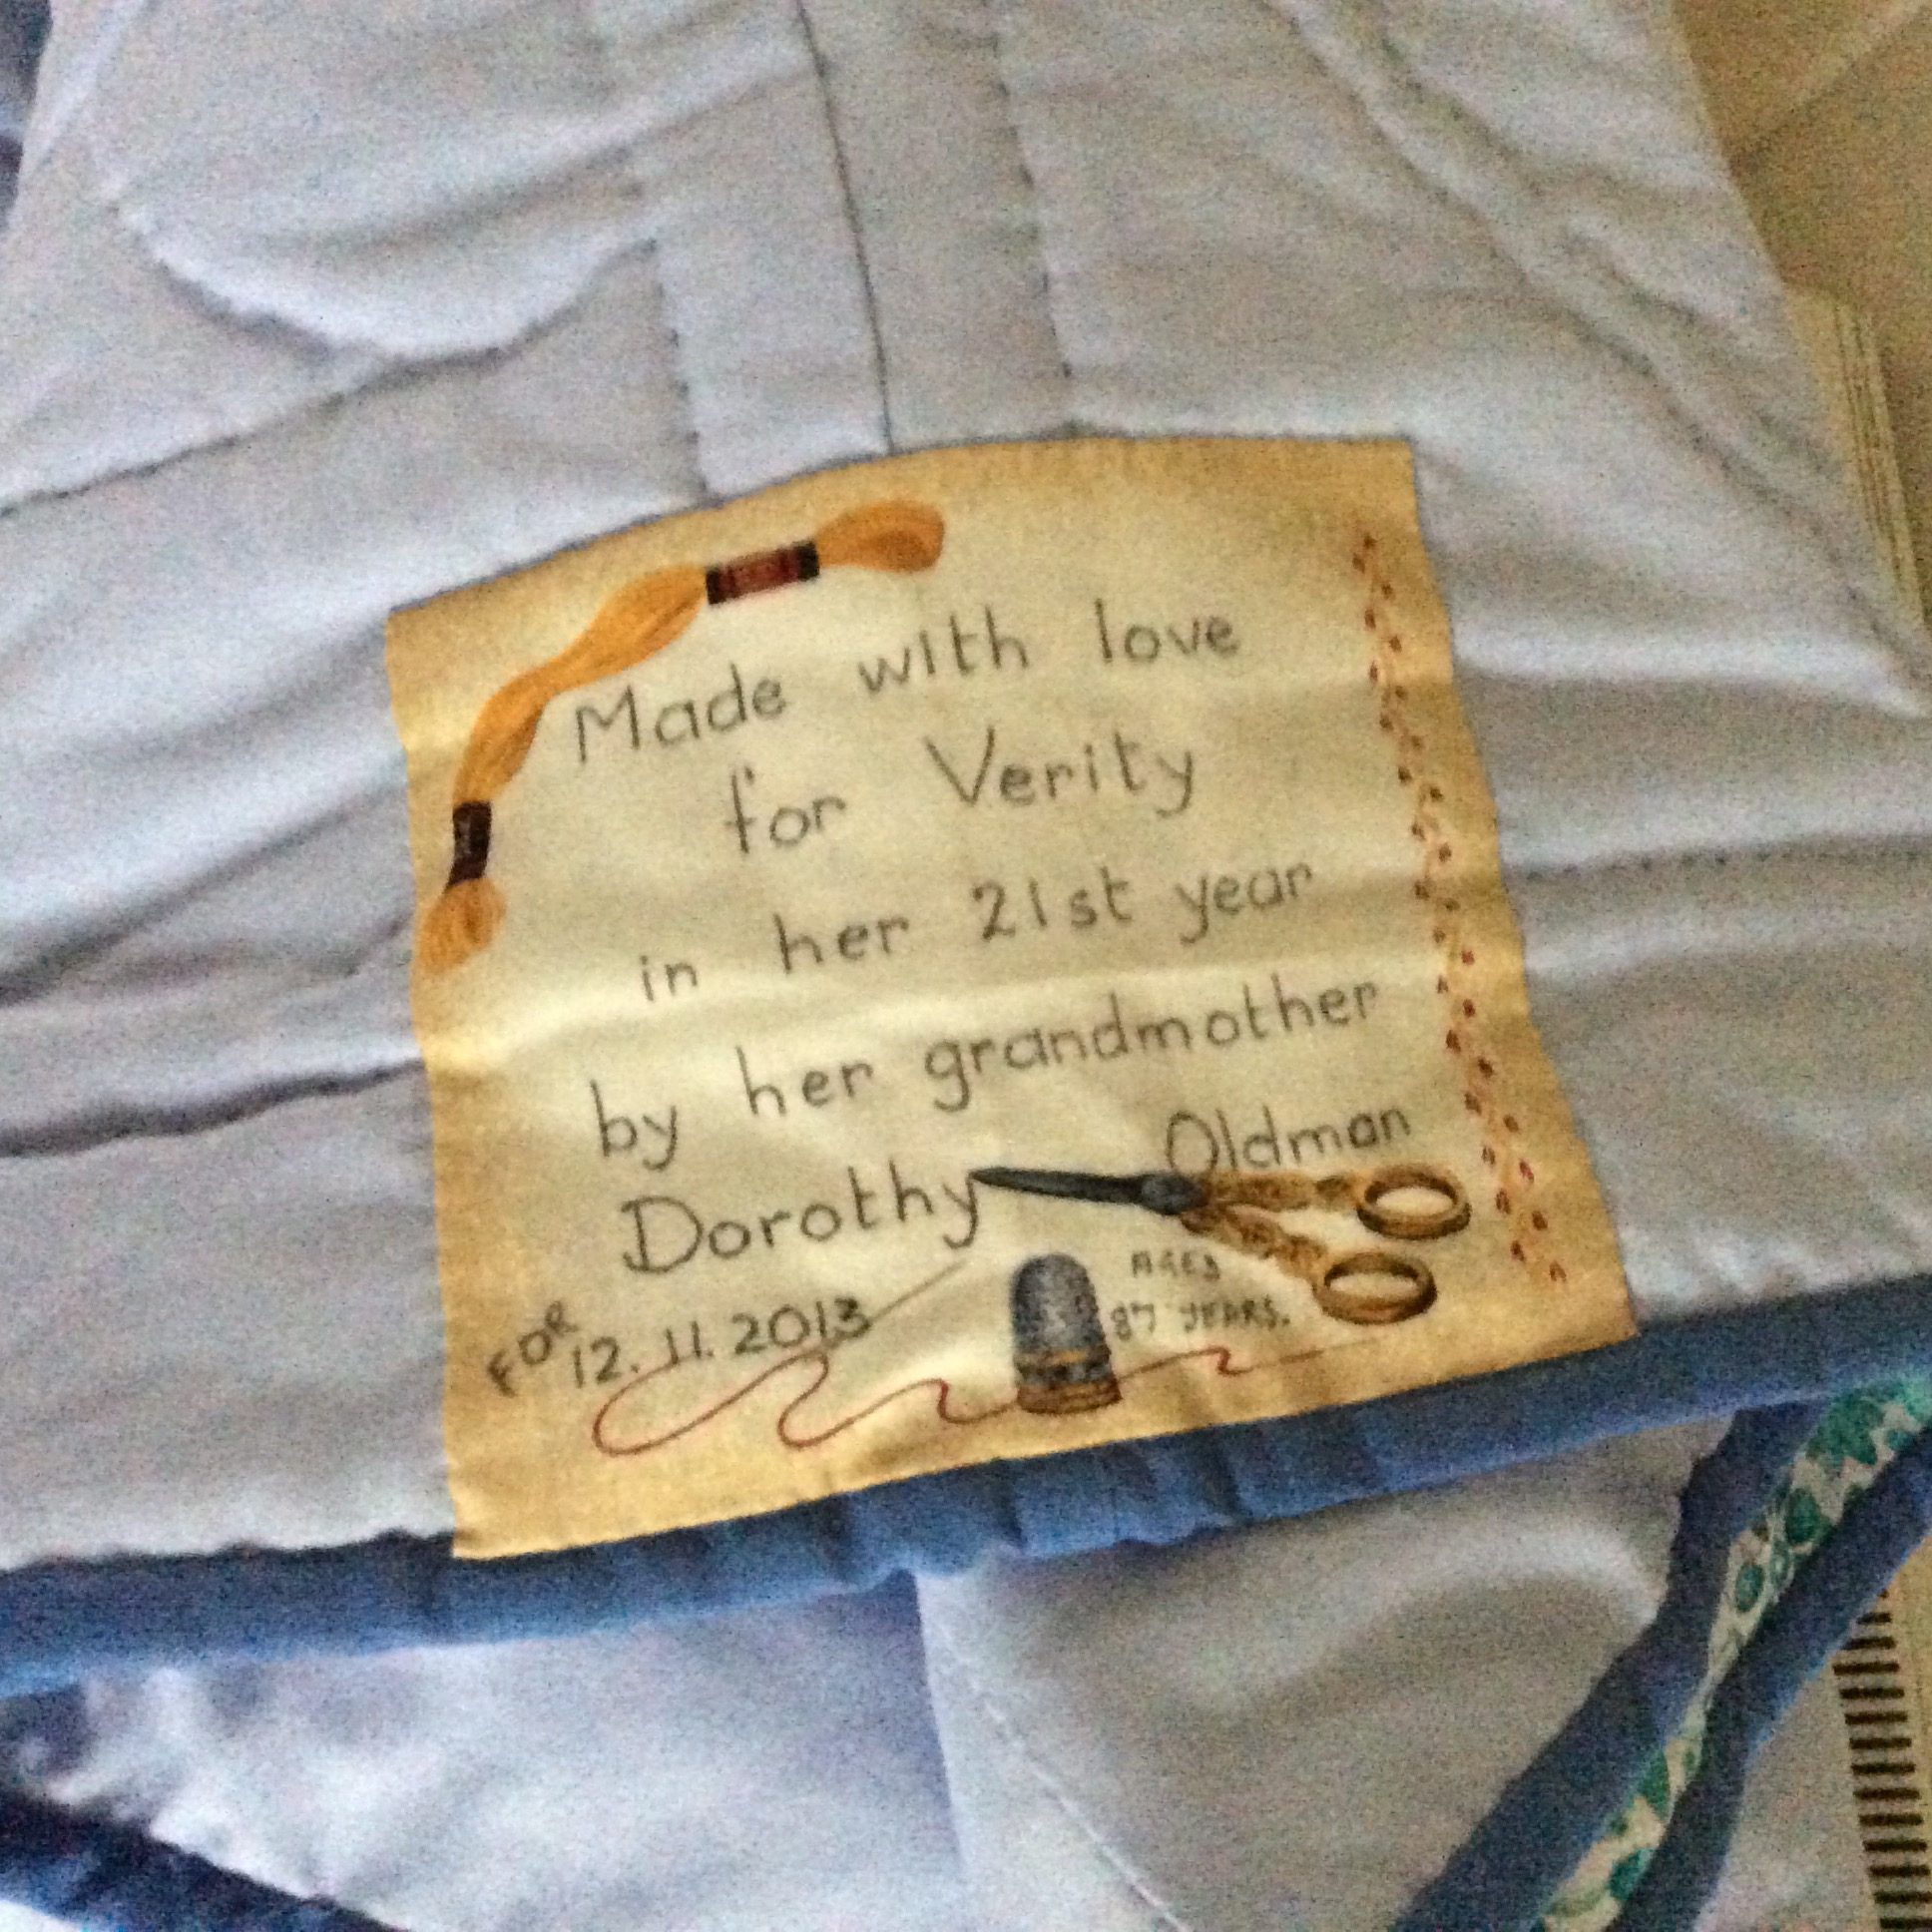 Made with love
for Verity
in her 21st year
by her grandmother
Dorothy Oldman
FOR 12.11.2013
AGED
87 YEARS.